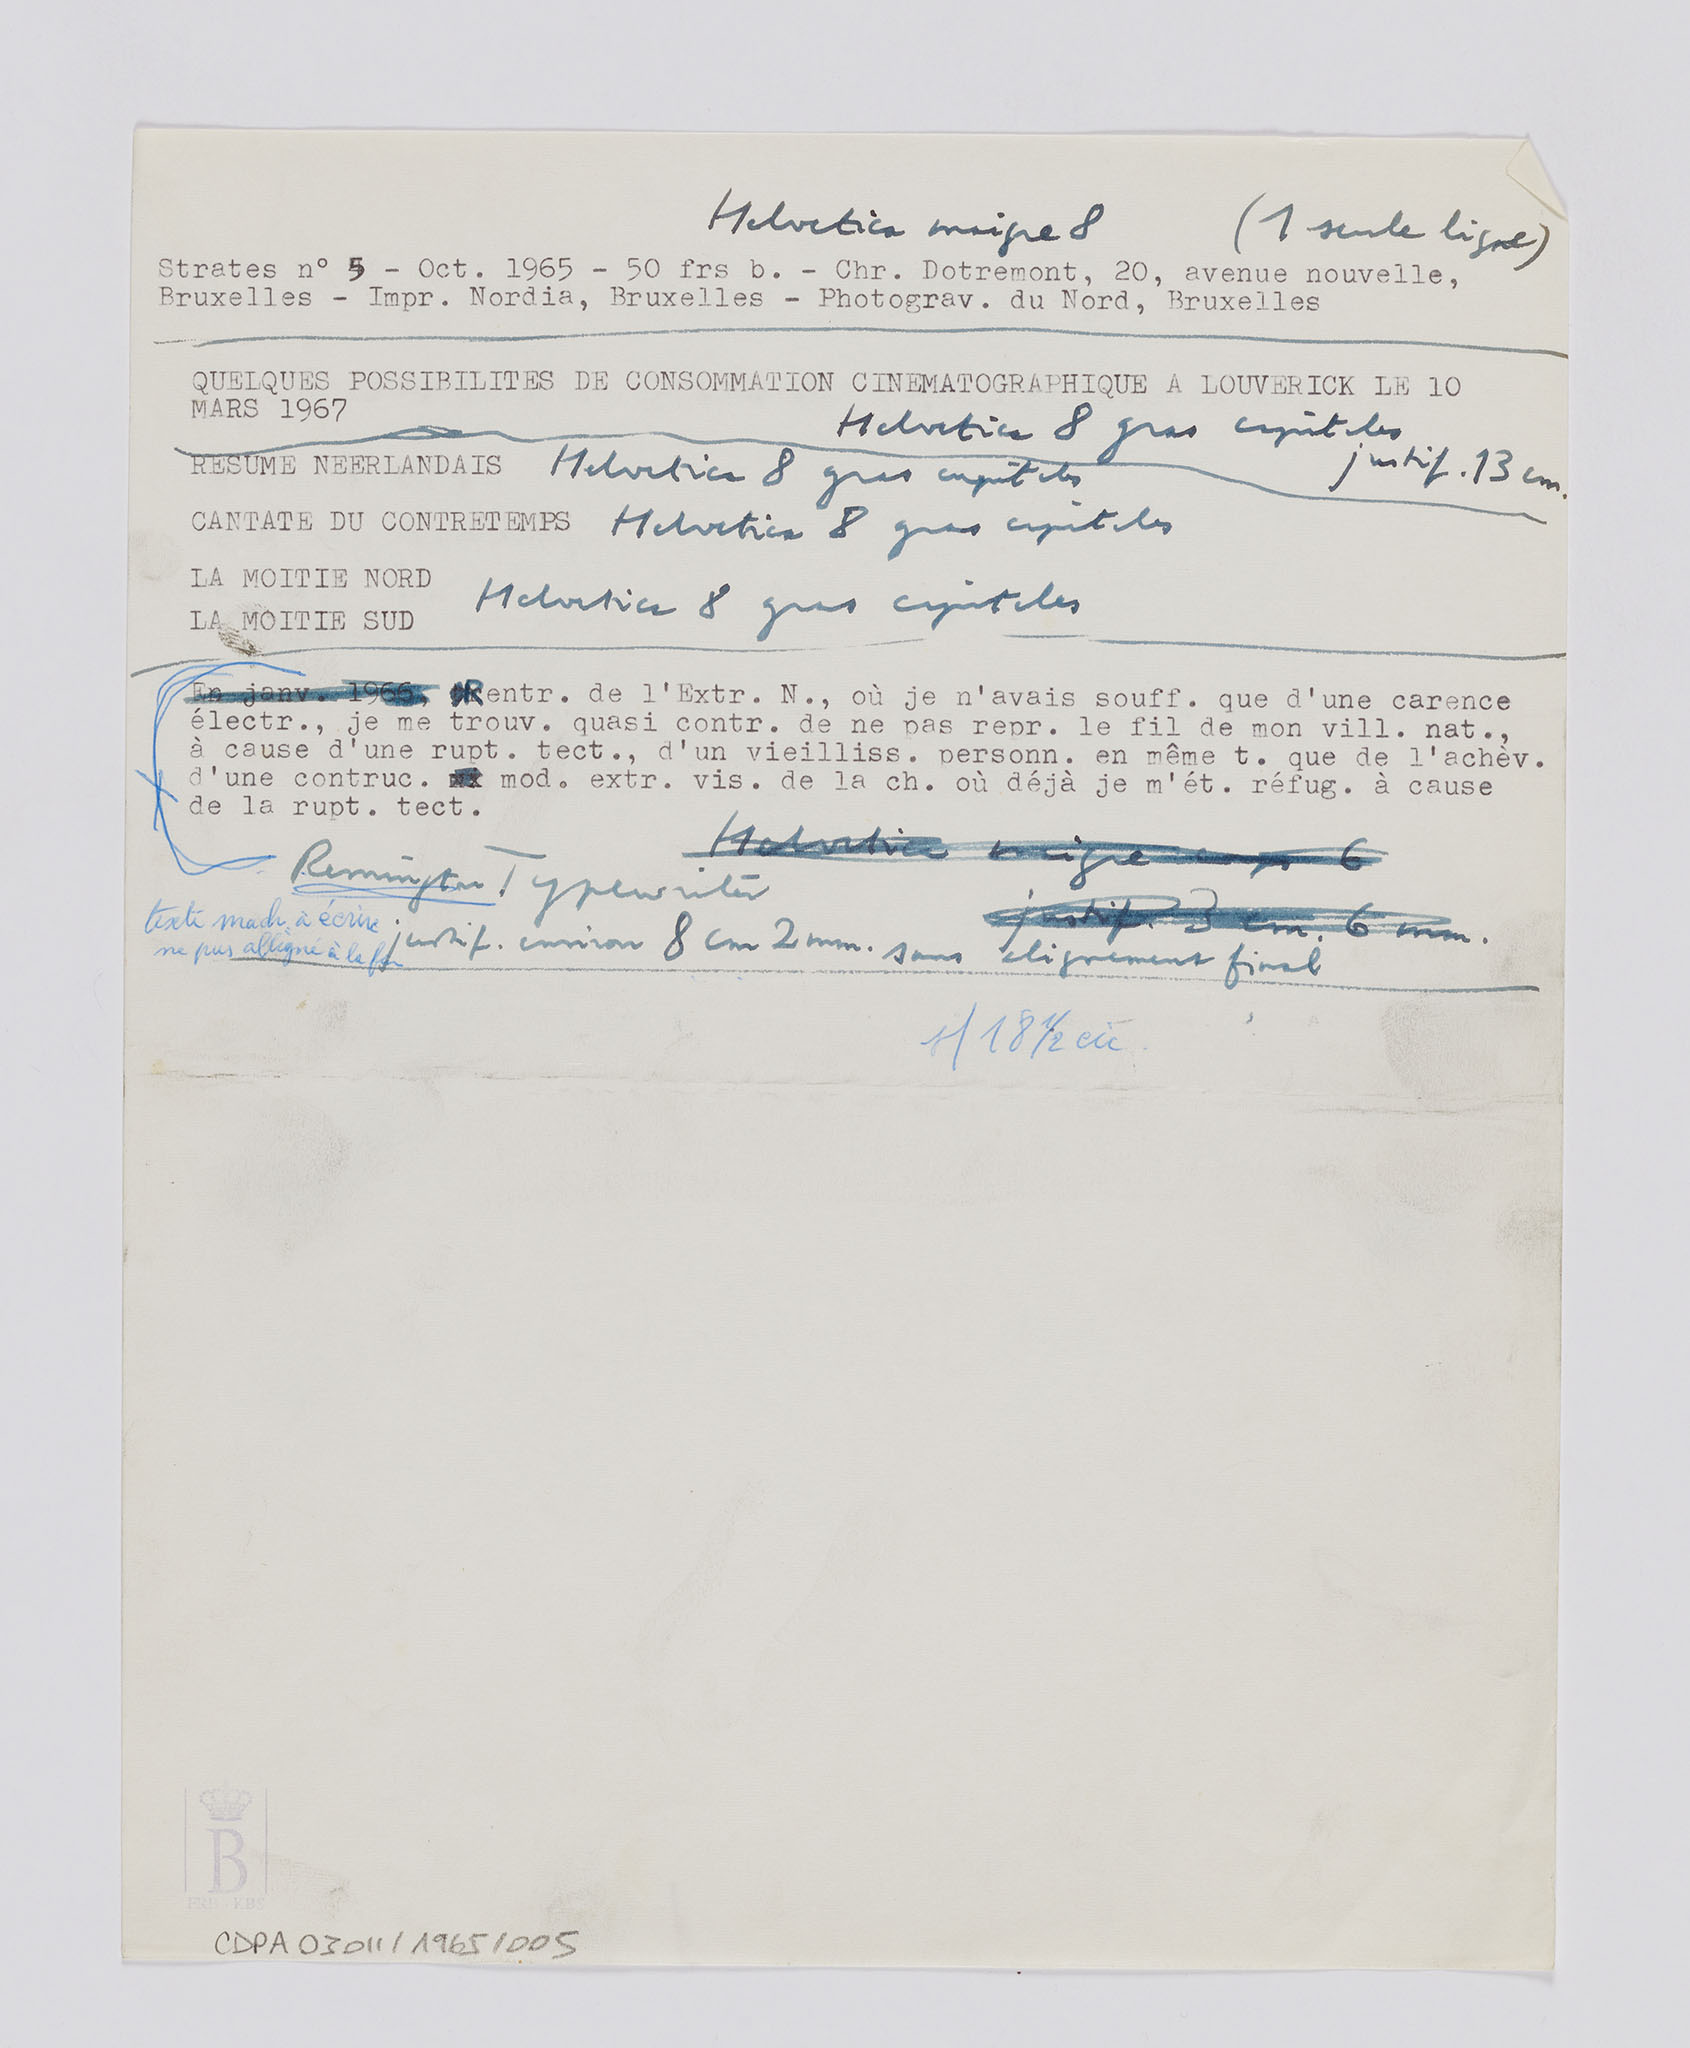 Helvetica maigre 8 (1 seule ligne)
Strates n° 5 - Oct. 1965 - 50 frs b. - Chr. Dotremont, 20, avenue nouvelle,
Bruxelles - Impr. Nordia, Bruxelles - Photograv. du Nord, Bruxelles
QUELQUES POSSIBILITES DE CONSOMMATION CINEMATOGRAPHIQUE A LOUVERICK LE 10
MARS 1967
Helvetica 8 gras capitales
justif. 13 cm.
RESUME NEERLANDAIS Helvetica 8 gras capitales
CANTATE DU CONTRETEMPS Helvetica 8 gras capitales
LA MOITIE NORD
Helvetica 8 gras capitales
LA MOITIE SUD
En janv. 1966, Rentr. de l'Extr. N., où je n'avais souff. que d'une carence
électr., je me trouv. quasi contr. de ne pas repr. le fil de mon vill. nat.,
à cause d'une rupt. tect., d'un vieilliss. personn. en même t. que de l'achèv.
d'une contruc. mod. extr. vis. de la ch. où déjà je m'ét. réfug. à cause
de la rupt. tect.
Helvetica maigre corps 6
Remington Typewriter
justif. 3 cm. 6 mm.
texte mach. à écrire
ne pas alligné à la fin
justif. environ 8 cm 2 mm. sans alignement final
s/ 18 1/2 cic.
B
FRB - KBS
CDPA 03011/1965/005